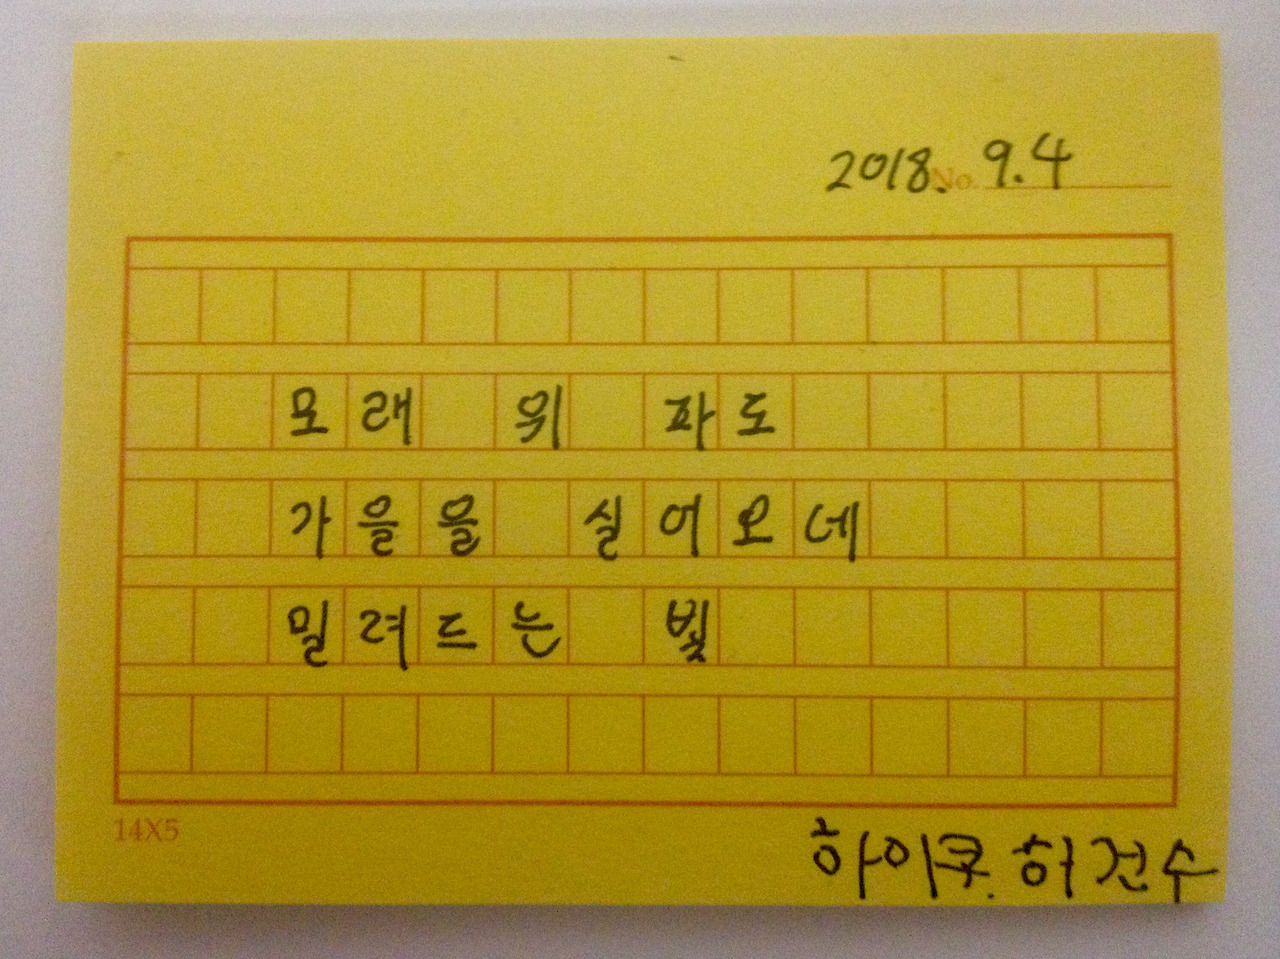 2018. No. 9.4
모래 위 파도
가을을 실어오네
밀려드는 빛
14X5
하이쿠. 허건수